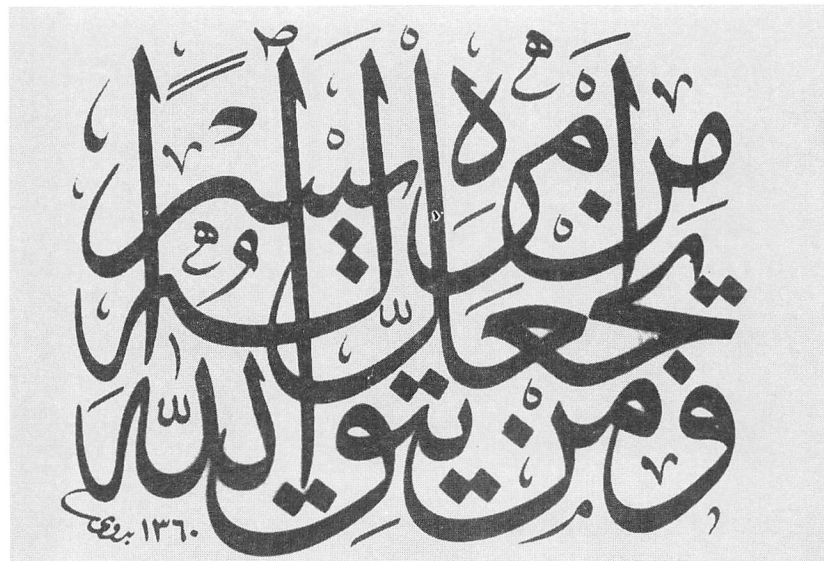 ومن يتق الله
يجعل له
من امره يسرًا
١٣٦٠ بدوي